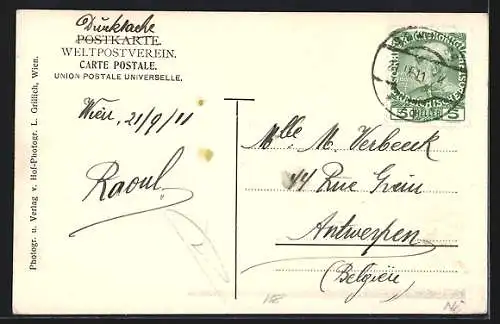 Drucksache
POSTKARTE.
WELTPOSTVEREIN.
CARTE POSTALE.
UNION POSTALE UNIVERSELLE.
Wien, 21/9/11
Raoul
Photogr. u. Verlag v. Hof-Photogr. L. Grillich, Wien.
Mlle. M. Verbeeck
44 Rue
Antwerpen
(Belgien)
5 5